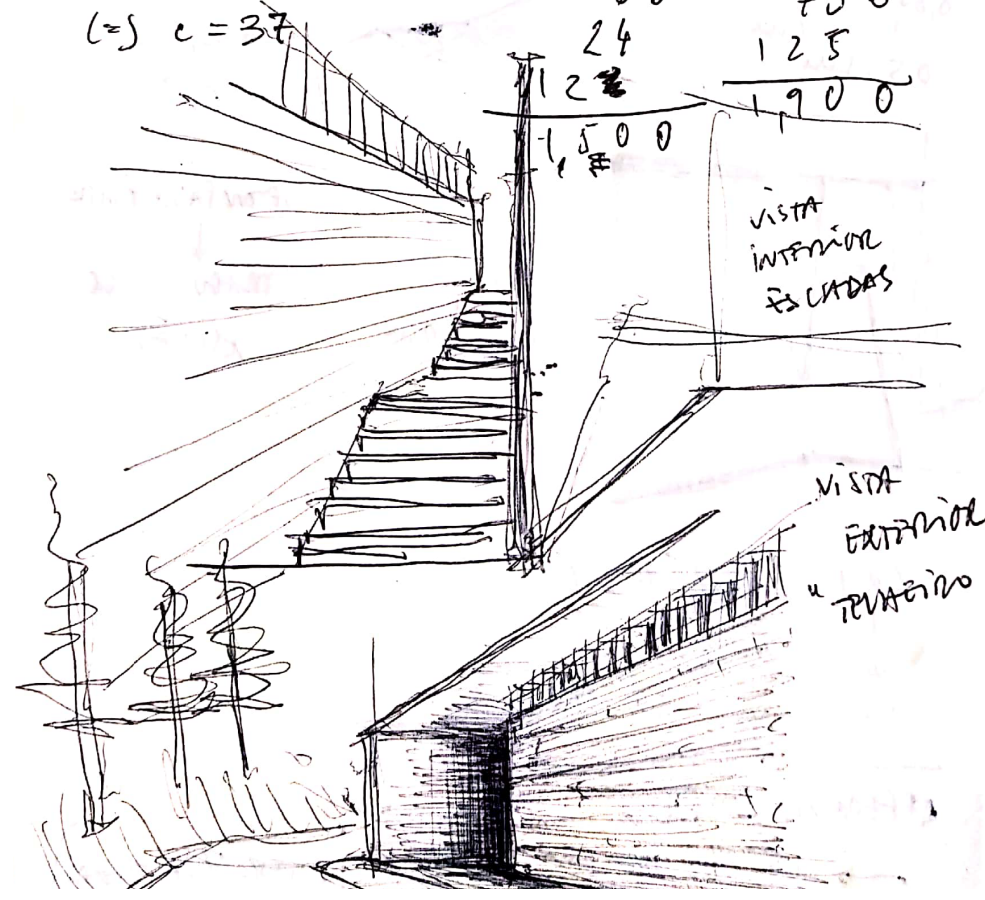 (=) c = 37
24
12
1,500
125
1,900
VISTA
INTERIOR
ESCADAS
VISTA
EXTERIOR
" TELHEIRO